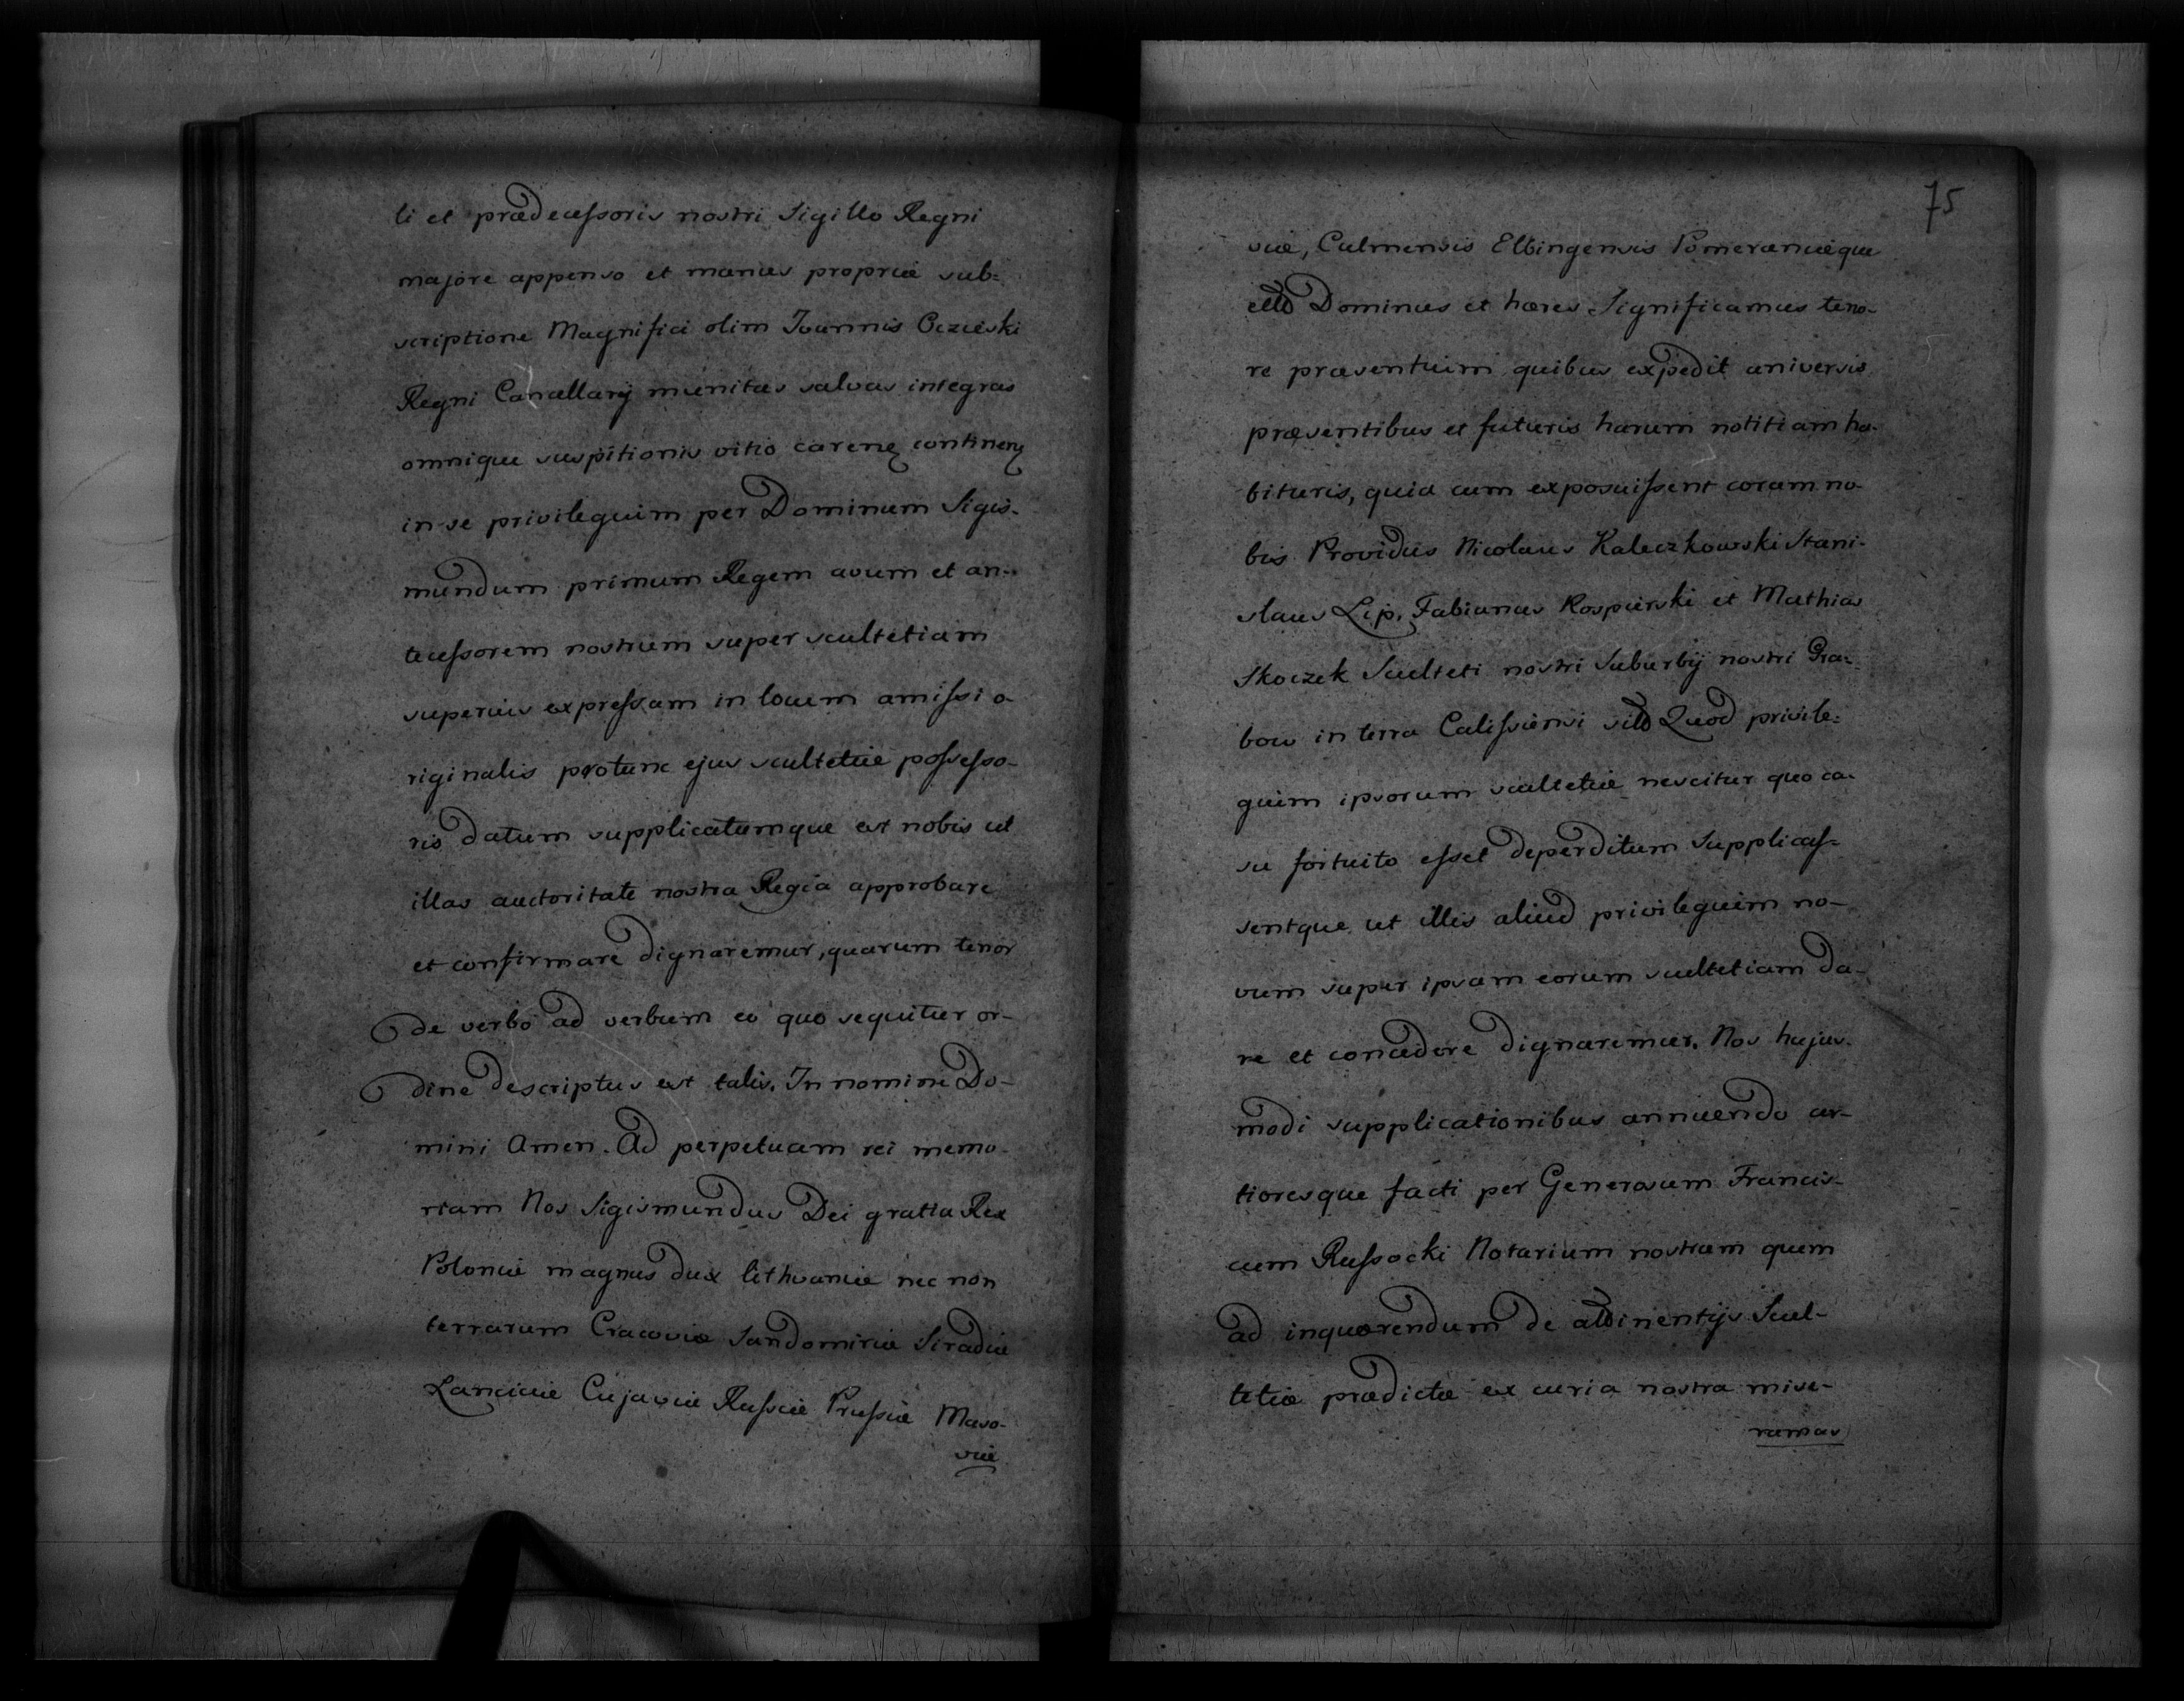 li et prædecessoris nostri Sigillo Regni
majore appenso et manus propriæ sub=
scriptione Magnifici olim Joannis Oczieski
Regni Cancellarÿ munitas salvas integras
omnique suspitionis vitio caren continen
in se privilegium per Dominum Sigis-
mundum primum Regem avum et an-
tecessorem nostrum super scultetiam
superius expressam in locum amissi o-
riginalis protunc ejus scultetiæ possesso-
ris datum supplicatumque est nobis ut
illas auctoritate nostra Regia approbare
et confirmare dignaremur, quarum tenor
de verbo ad verbum eo quo sequitur or-
dine descriptus est talis. In nomine Do-
mini Amen. Ad perpetuam rei memo-
riam Nos Sigismundus Dei gratia Rex
Poloniæ magnus dux lithvaniæ nec non
terrarum Cracoviæ Sandomiriæ Siradiæ
Lanciciæ Cujaviæ Russiæ Prussiæ Maso-
viæ
75
viæ, Culmensis Elbingensis Pomeraniæque
Dominus et hæres Significamus teno-
re præsentium quibus expedit universis
præsentibus et futuris harum notitiam ha-
bituris, quia cum exposuissent coram no-
bis Providus Nicolaus Kaleczkowski Stani-
slaus Lip, Fabianus Rospierski et Mathias
Skoczek Sculteti nostri Suburbÿ nostri Gra-
bow in terra Calissiensi Quod privile-
gium ipsorum scultetiæ nescitur quo ca-
su fortuito esset deperditum Supplicas-
sentque ut illis aliud privilegium no-
vum super ipsam eorum scultetiam da-
re et concedere dignaremur. Nos hujus-
modi supplicationibus annuendo cer-
tioresque facti per Generosum Francis-
cum Russocki Notarium nostrum quem
ad inquærendum de attinentÿs Scul-
tetiæ prædictæ ex curia nostra mise-
ramus